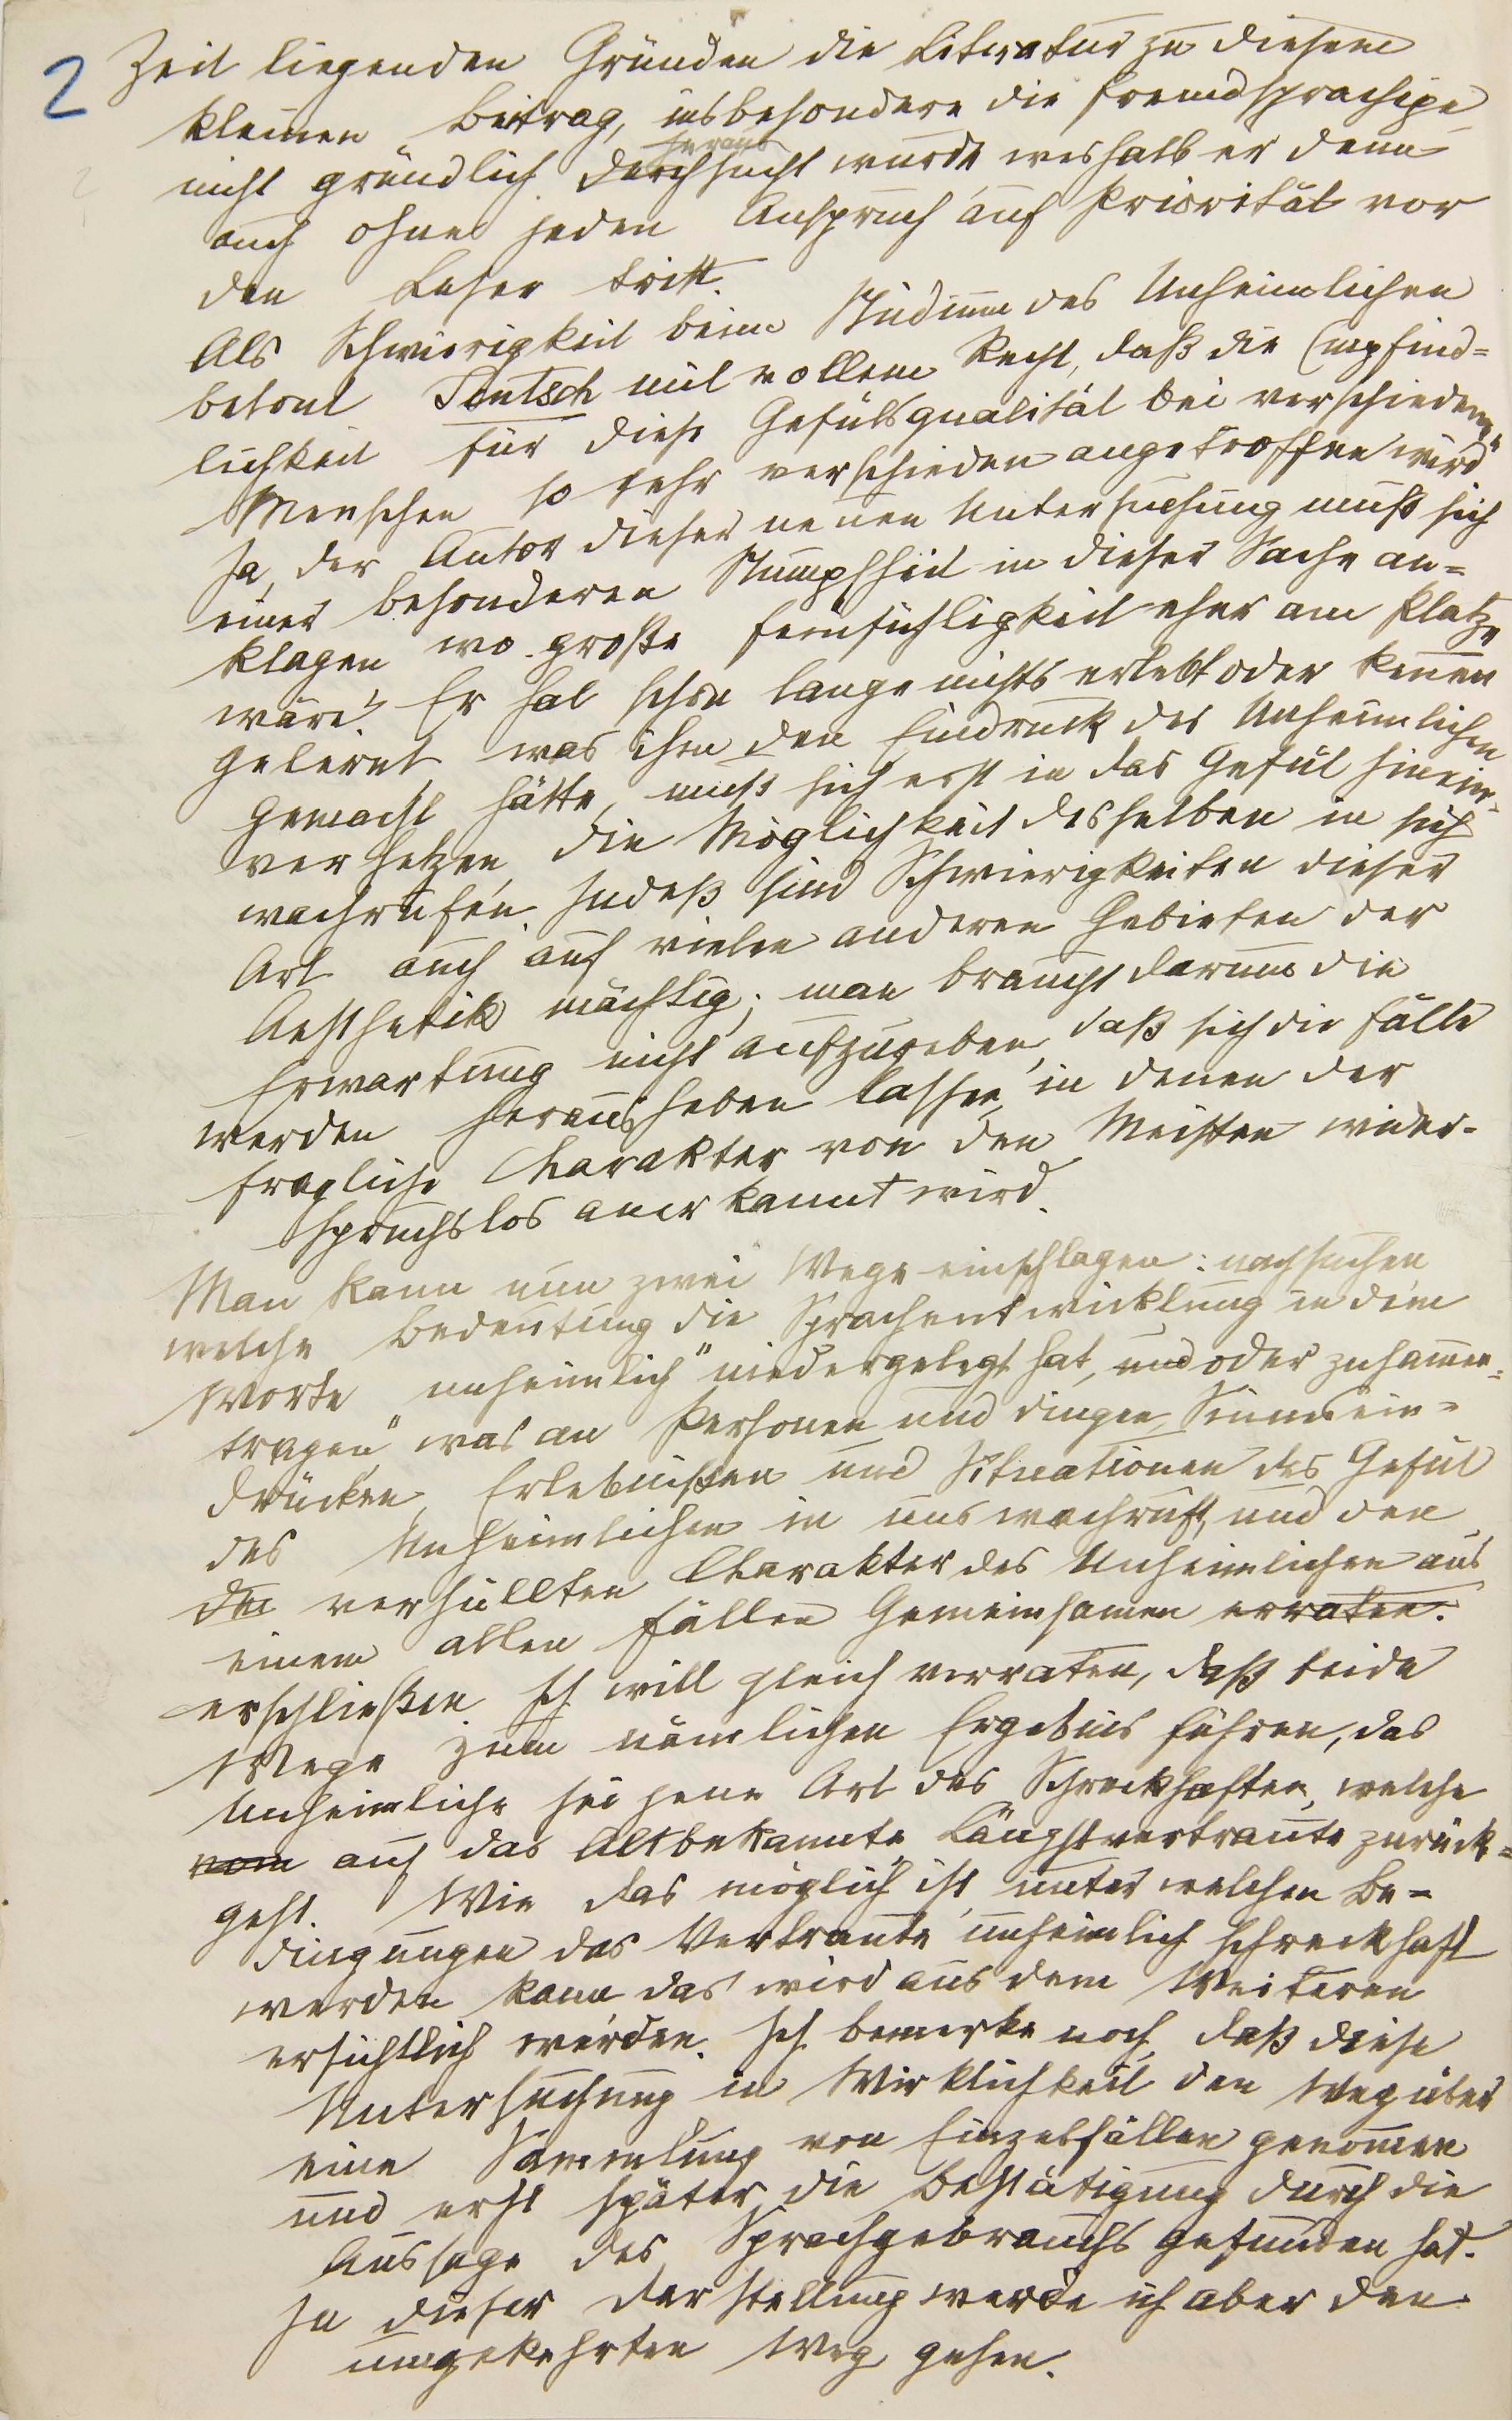 2
Zeit liegenden Gründen die Literatur zu diesem
kleinen Beitrag, insbesondere die fremdsprachige
heraus
nicht gründlich durchsucht wurde weshalb er denn
auch ohne jeden Anspruch auf Priorität vor
den Leser tritt.
Als Schwierigkeit beim Studium des Unheimlichen
betont Jentsch mit vollem Recht, daß die Empfind=
lichkeit für diese Gefülsqualität bei verschiedenen
Menschen so sehr verschieden angetroffen wird
Ja, der Autor dieser neuen Untersuchung muß sich
einer besonderen Stumpfheit in dieser Sache an=
klagen wo große Feinfühligkeit eher am Platze
wäre. Er hat schon lange nichts erlebt oder kennen
gelernt, was ihm den Eindruck des Unheimlichen
gemacht hätte, muß sich erst in das Gefül hinein-
versetzen, die Möglichkeit desselben in sich
wachrufen. Indeß sind Schwierigkeiten dieser
Art auch auf vielen anderen Gebieten der
Aesthetik mächtig; man braucht darum die
Erwartung nicht aufzugeben, daß sich die Fälle
werden herausheben lassen, in denen der
fragliche Charakter von den Meisten wider-
spruchslos anerkannt wird.
Man kann nun zwei Wege einschlagen: nachsuchen
welche Bedeutung die Sprachentwicklung in dem
Worte „unheimlich“ niedergelegt hat, und oder zusammen=
tragen, was an Personen und Dingen, Sinnesein=
drücken, Erlebnißen und Situationen das Gefül
des Unheimlichen in uns wachruft, und den
den verhüllten Charakter des Unheimlichen aus
einem allen Fällen Gemeinsamen erraten.
erschließen. Ich will gleich verraten, daß beide
Wege zum nämlichen Ergebnis führen, das
Unheimliche sei jene Art des Schreckhaften, welche
vom auf das Altbekannte, Längstvertraute zurück=
geht. Wie das möglich ist, unter welchen Be=
dingungen das Vertraute unheimlich schreckhaft
werden kann, das wird aus dem Weiteren
ersichtlich werden. Ich bemerke noch, daß diese
Untersuchung in Wirklichkeit den Weg über
eine Sammlung von Einzelfällen genommen
und erst später die Bestätigung durch die
Aussage des Sprachgebrauchs gefunden hat.
In dieser Darstellung werde ich aber den
umgekehrten Weg gehen.